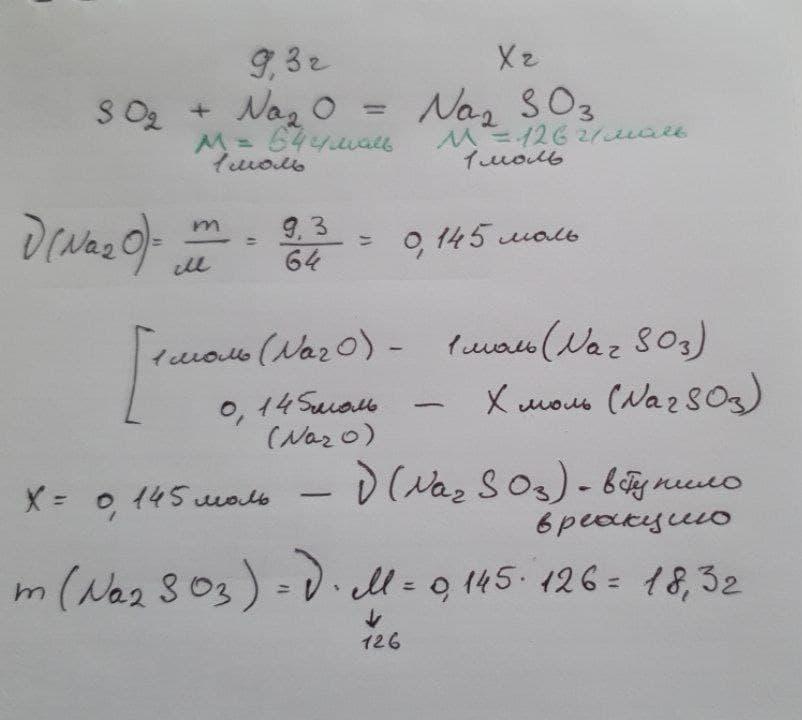 9,3г Xг
SO2 + Na2O = Na2 SO3
M = 64г/моль M = 126 г/моль
1 моль 1 моль
ν(Na2O) = m/M = 9,3/64 = 0,145 моль
1 моль (Na2O) – 1 моль (Na2 SO3)
0,145 моль — X моль (Na2SO3)
(Na2O)
X = 0,145 моль — ν(Na2SO3) - вступило
в реакцию
m (Na2 SO3) = ν · M = 0,145 · 126 = 18,3г
↓
126